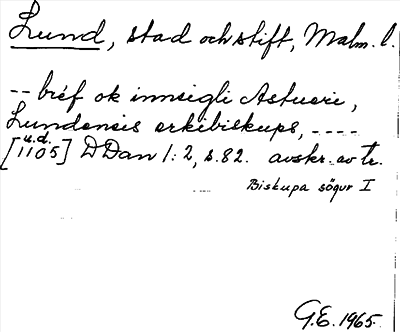 Lund, stad och stift, Malm. l.
-- bréf ok innsigli Astueri,
Lundensis erkibiskups, ----
u.d.
[1105] DDan 1:2, s. 82. avskr. av tr.
Biskupa sögur I
G.E. 1965.